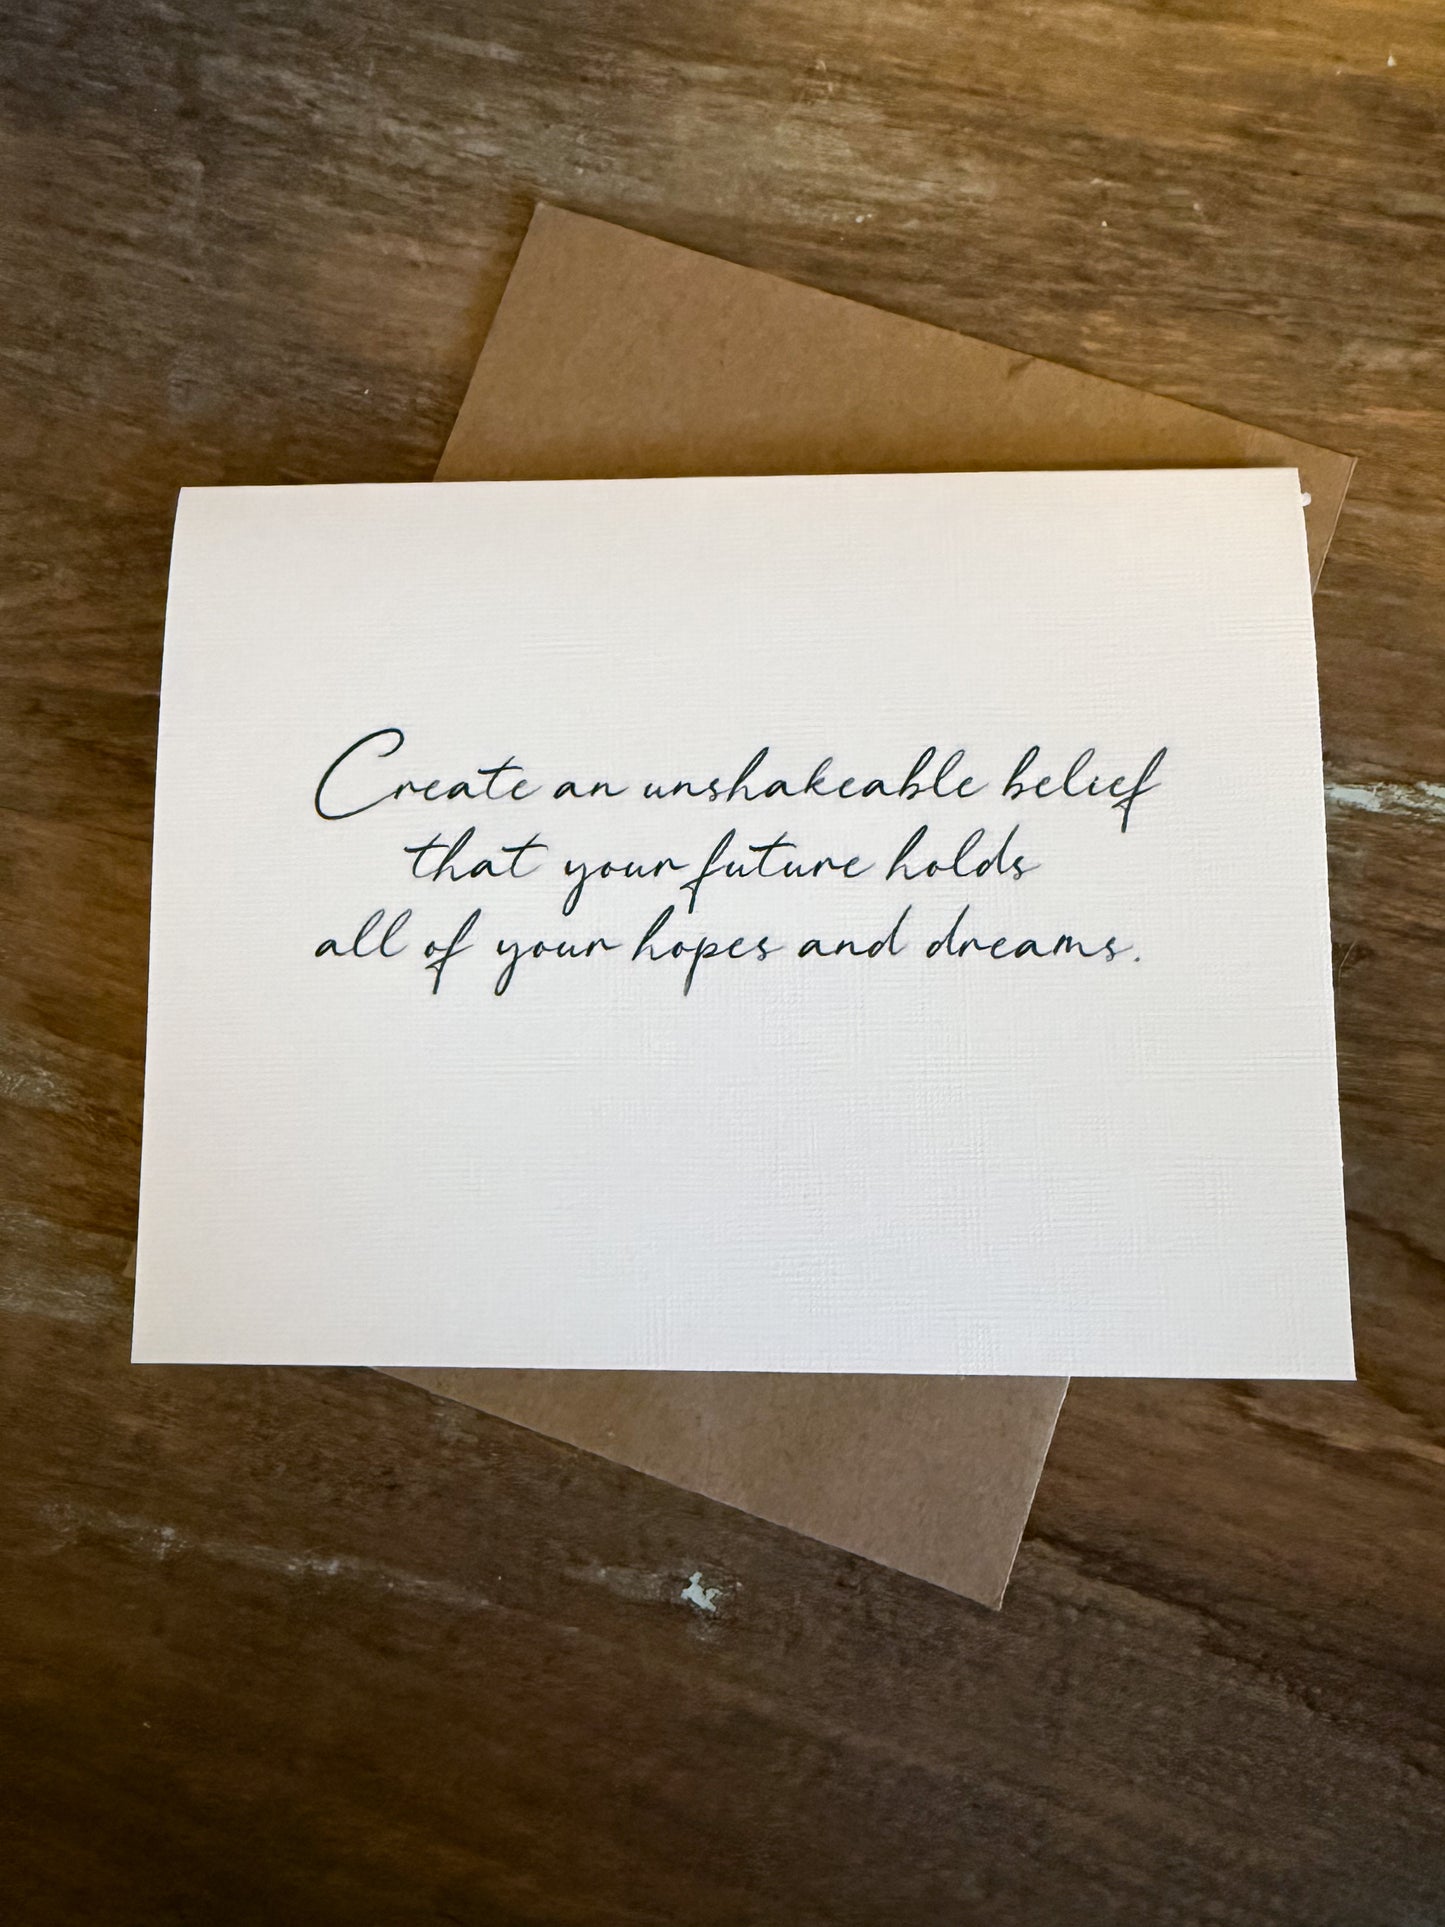 Create an unshakeable belief
that your future holds
all of your hopes and dreams.